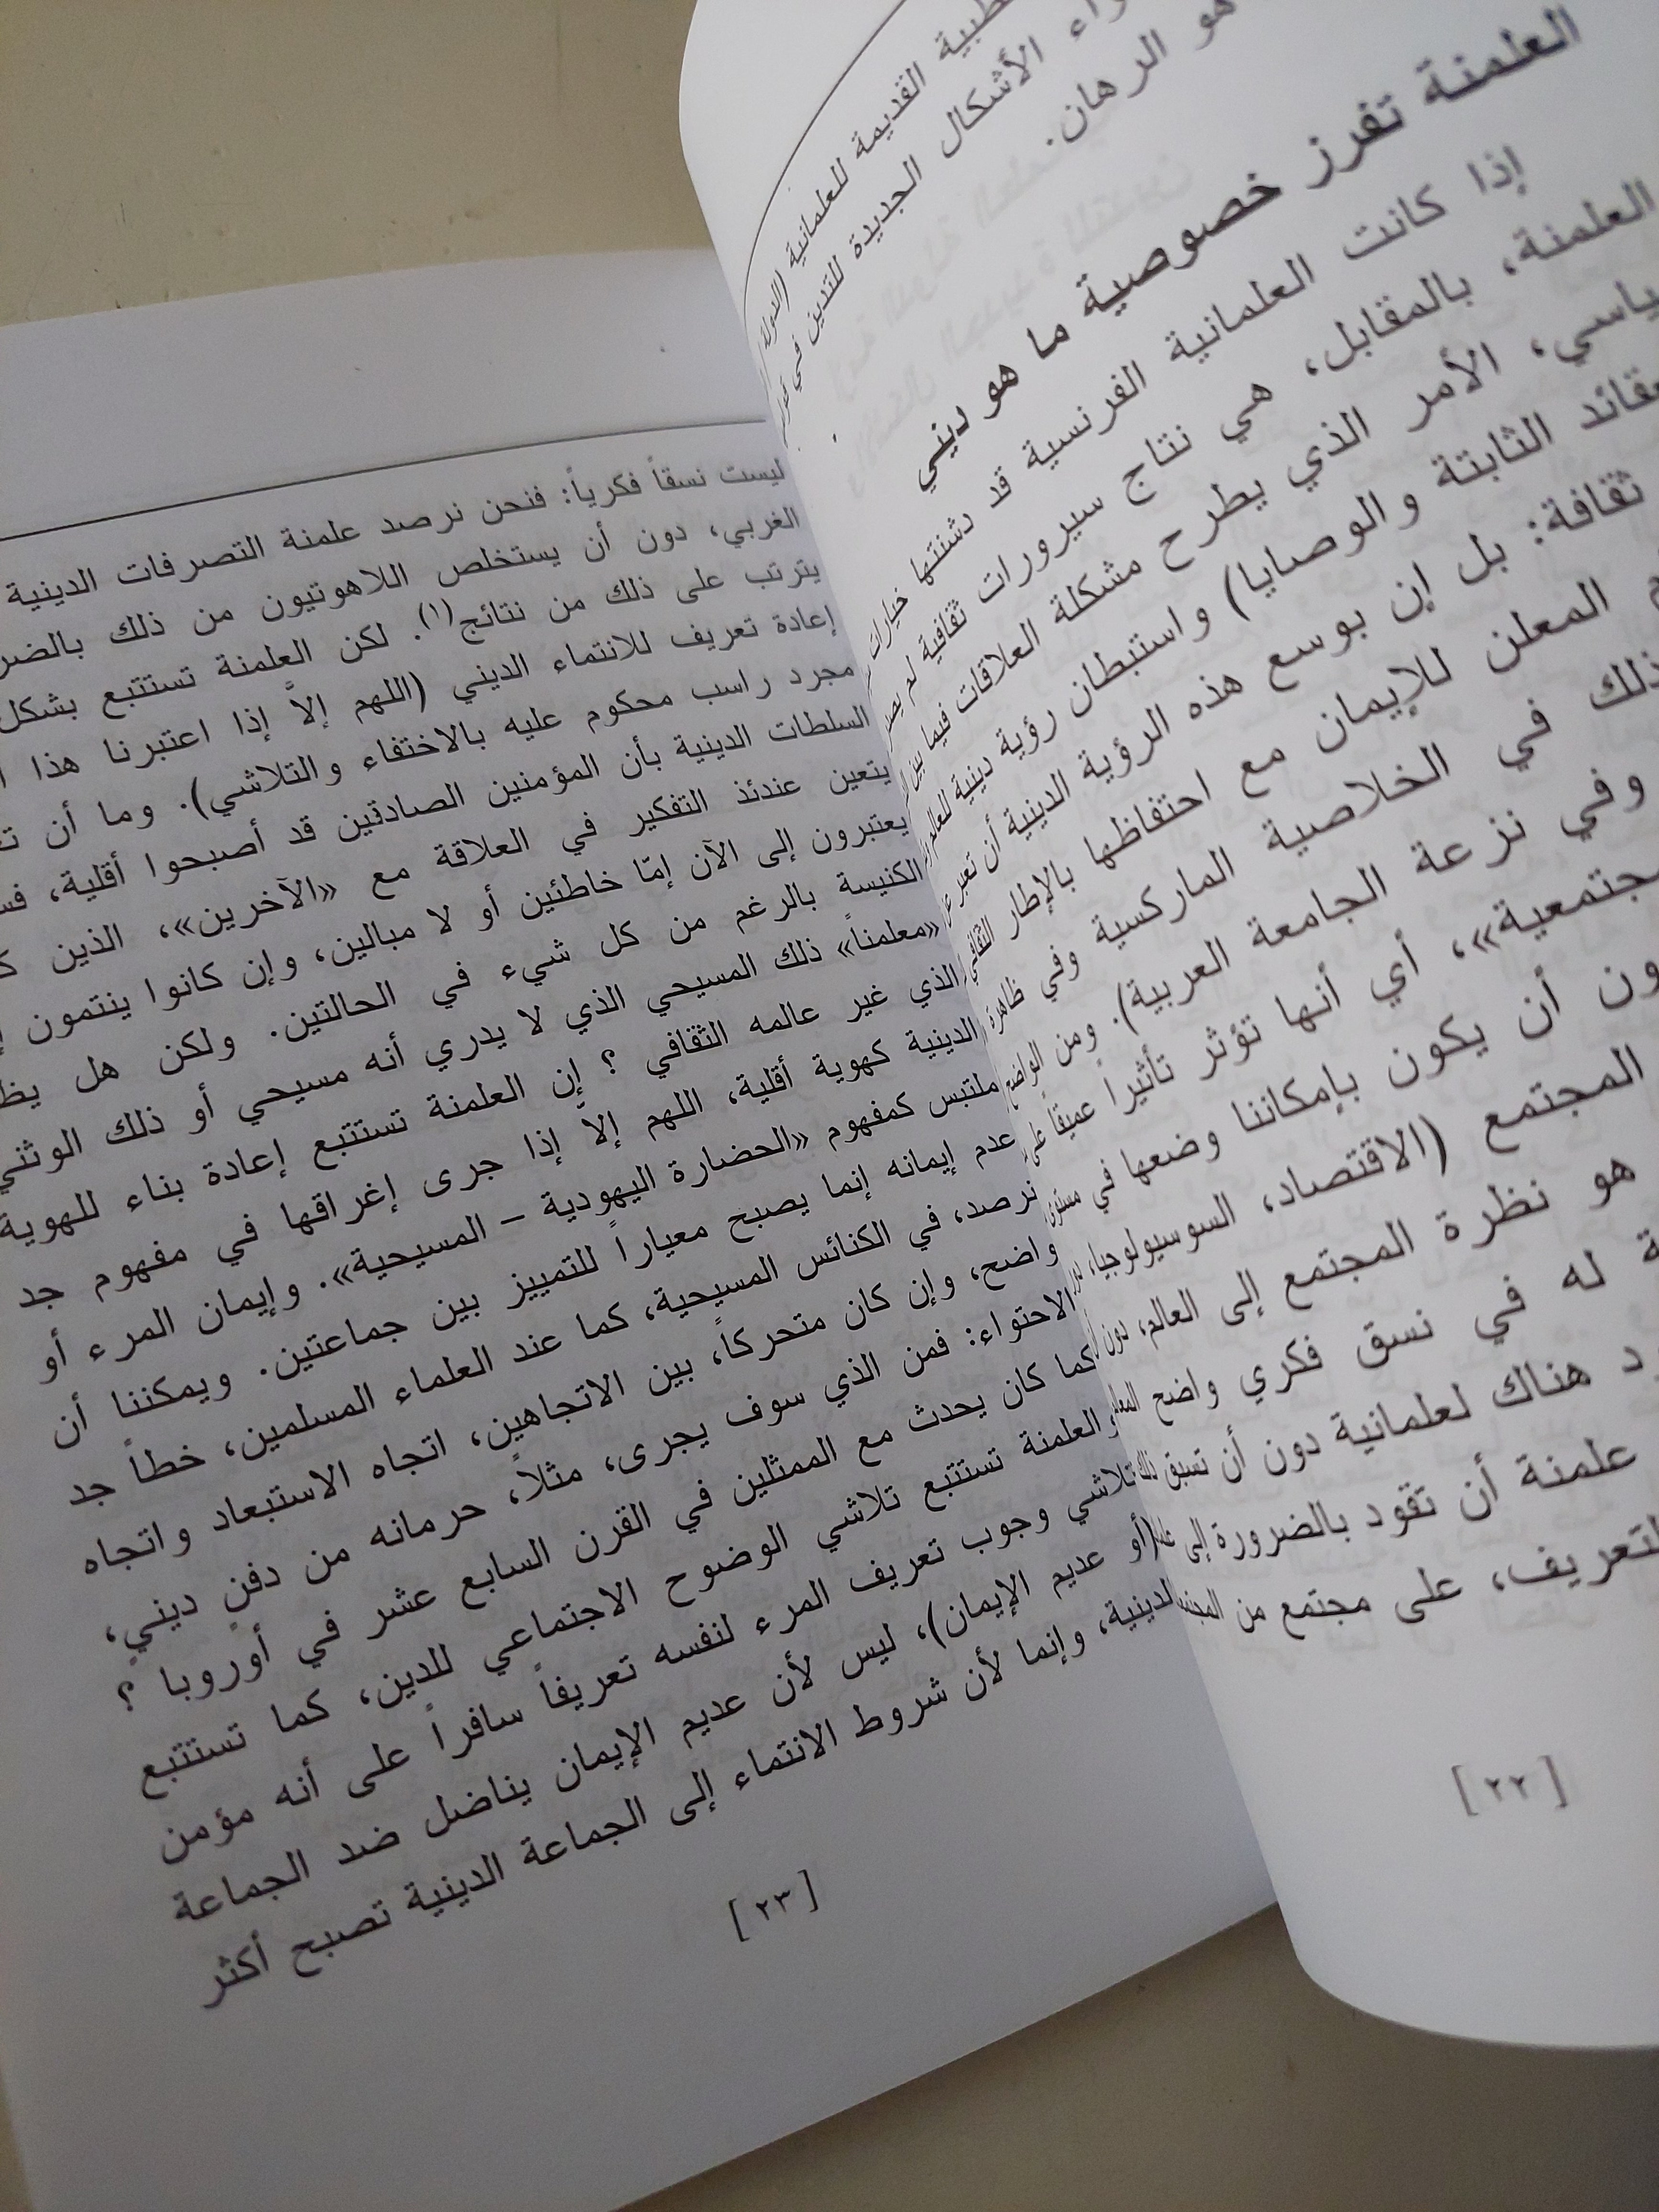 القديمة للعلمانية (الدولة
الأشكال الجديدة للتدين في
هو الرهان.
العلمنة تفرز خصوصية ما هو ديني
إذا كانت العلمانية الفرنسية قد دشنتها خيارات
العلمنة، بالمقابل، هي نتاج سيرورات ثقافية لم
الأمر الذي يطرح مشكلة العلاقات فيما بين
الثابتة والوصايا) واستبطان رؤية دينية للعالم
ثقافة: بل إن بوسع هذه الرؤية الدينية أن تعبر عن
المعلن للإيمان مع احتفاظها بالإطار الثقافي
ذلك في الخلاصية الماركسية وفي ظاهرة
وفي نزعة الجامعة العربية). ومن الواضح
أي أنها تؤثر تأثيراً عميقاً على
أن يكون بإمكاننا وضعها في مستوى
المجتمع (الاقتصاد، السوسيولوجيا،
هو نظرة المجتمع إلى العالم، دون
له في نسق فكري واضح
هناك لعلمانية دون أن تسبق ذلك
علمنة أن تقود بالضرورة إلى
على مجتمع من
[٢٢]
ليست نسقاً فكرياً: فنحن نرصد علمنة التصرفات الدينية
الغربي، دون أن يستخلص اللاهوتيون من ذلك
يترتب على ذلك من نتائج(١). لكن العلمنة تستتبع بشكل
إعادة تعريف للانتماء الديني (اللهم إلاَّ إذا اعتبرنا هذا
مجرد راسب محكوم عليه بالاختفاء والتلاشي). وما أن
السلطات الدينية بأن المؤمنين الصادقين قد أصبحوا أقلية،
يتعين عندئذ التفكير في العلاقة مع «الآخرين»، الذين
يعتبرون إلى الآن إمّا خاطئين أو لا مبالين، وإن كانوا ينتمون
الكنيسة بالرغم من كل شيء في الحالتين. ولكن هل
«معلمناً» ذلك المسيحي الذي لا يدري أنه مسيحي أو ذلك الوثني
الذي غير عالمه الثقافي ؟ إن العلمنة تستتبع إعادة بناء للهوية
الدينية كهوية أقلية، اللهم إلاَّ إذا جرى إغراقها في مفهوم جد
ملتبس كمفهوم «الحضارة اليهودية – المسيحية». وإيمان المرء أو
عدم إيمانه إنما يصبح معياراً للتمييز بين جماعتين. ويمكننا أن
نرصد، في الكنائس المسيحية، كما عند العلماء المسلمين، خطاً جد
واضح، وإن كان متحركاً، بين الاتجاهين، اتجاه الاستبعاد واتجاه
الاحتواء: فمن الذي سوف يجرى، مثلاً، حرمانه من دفنٍ دينيٍ،
كما كان يحدث مع الممثلين في القرن السابع عشر في أوروبا ؟
والعلمنة تستتبع تلاشي الوضوح الاجتماعي للدين، كما تستتبع
تلاشي وجوب تعريف المرء لنفسه تعريفاً سافراً على أنه مؤمن
(أو عديم الإيمان)، ليس لأن عديم الإيمان يناضل ضد الجماعة
الدينية، وإنما لأن شروط الانتماء إلى الجماعة الدينية تصبح أكثر
[٢٣]